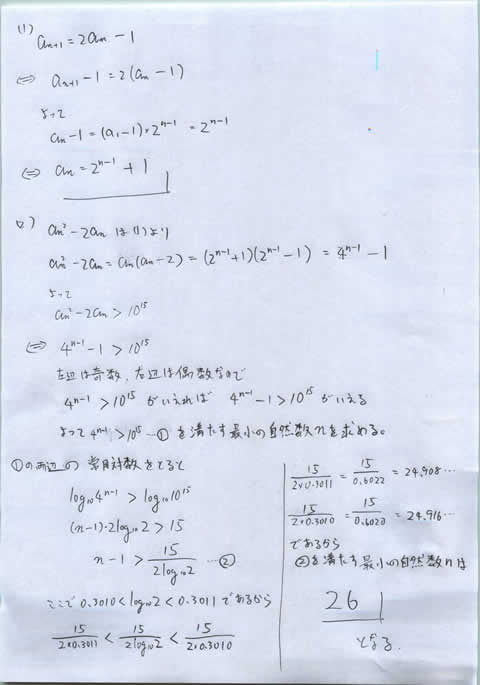 (1)
a_{n+1} = 2a_n - 1
⇔ a_{n+1} - 1 = 2(a_n - 1)
よって
a_n - 1 = (a_1 - 1)・2^{n-1} = 2^{n-1}
⇔ a_n = 2^{n-1} + 1
(2) a_n² - 2a_n は(1)より
a_n² - 2a_n = a_n(a_n - 2) = (2^{n-1}+1)(2^{n-1}-1) = 4^{n-1} - 1
よって
a_n² - 2a_n > 10^{15}
⇔ 4^{n-1} - 1 > 10^{15}
左辺は奇数, 右辺は偶数なので
4^{n-1} > 10^{15} がいえれば 4^{n-1} - 1 > 10^{15} がいえる
よって 4^{n-1} > 10^{15} …① を満たす最小の自然数nを求める。
①の両辺の常用対数をとると
log_{10} 4^{n-1} > log_{10} 10^{15}
(n-1)・2log_{10} 2 > 15
n - 1 > 15/(2log_{10} 2) …②
ここで 0.3010 < log_{10} 2 < 0.3011 であるから
15/(2×0.3011) < 15/(2log_{10} 2) < 15/(2×0.3010)
15/(2×0.3011) = 15/0.6022 = 24.908…
15/(2×0.3010) = 15/0.6020 = 24.916…
であるから
②を満たす最小の自然数nは
26
となる.